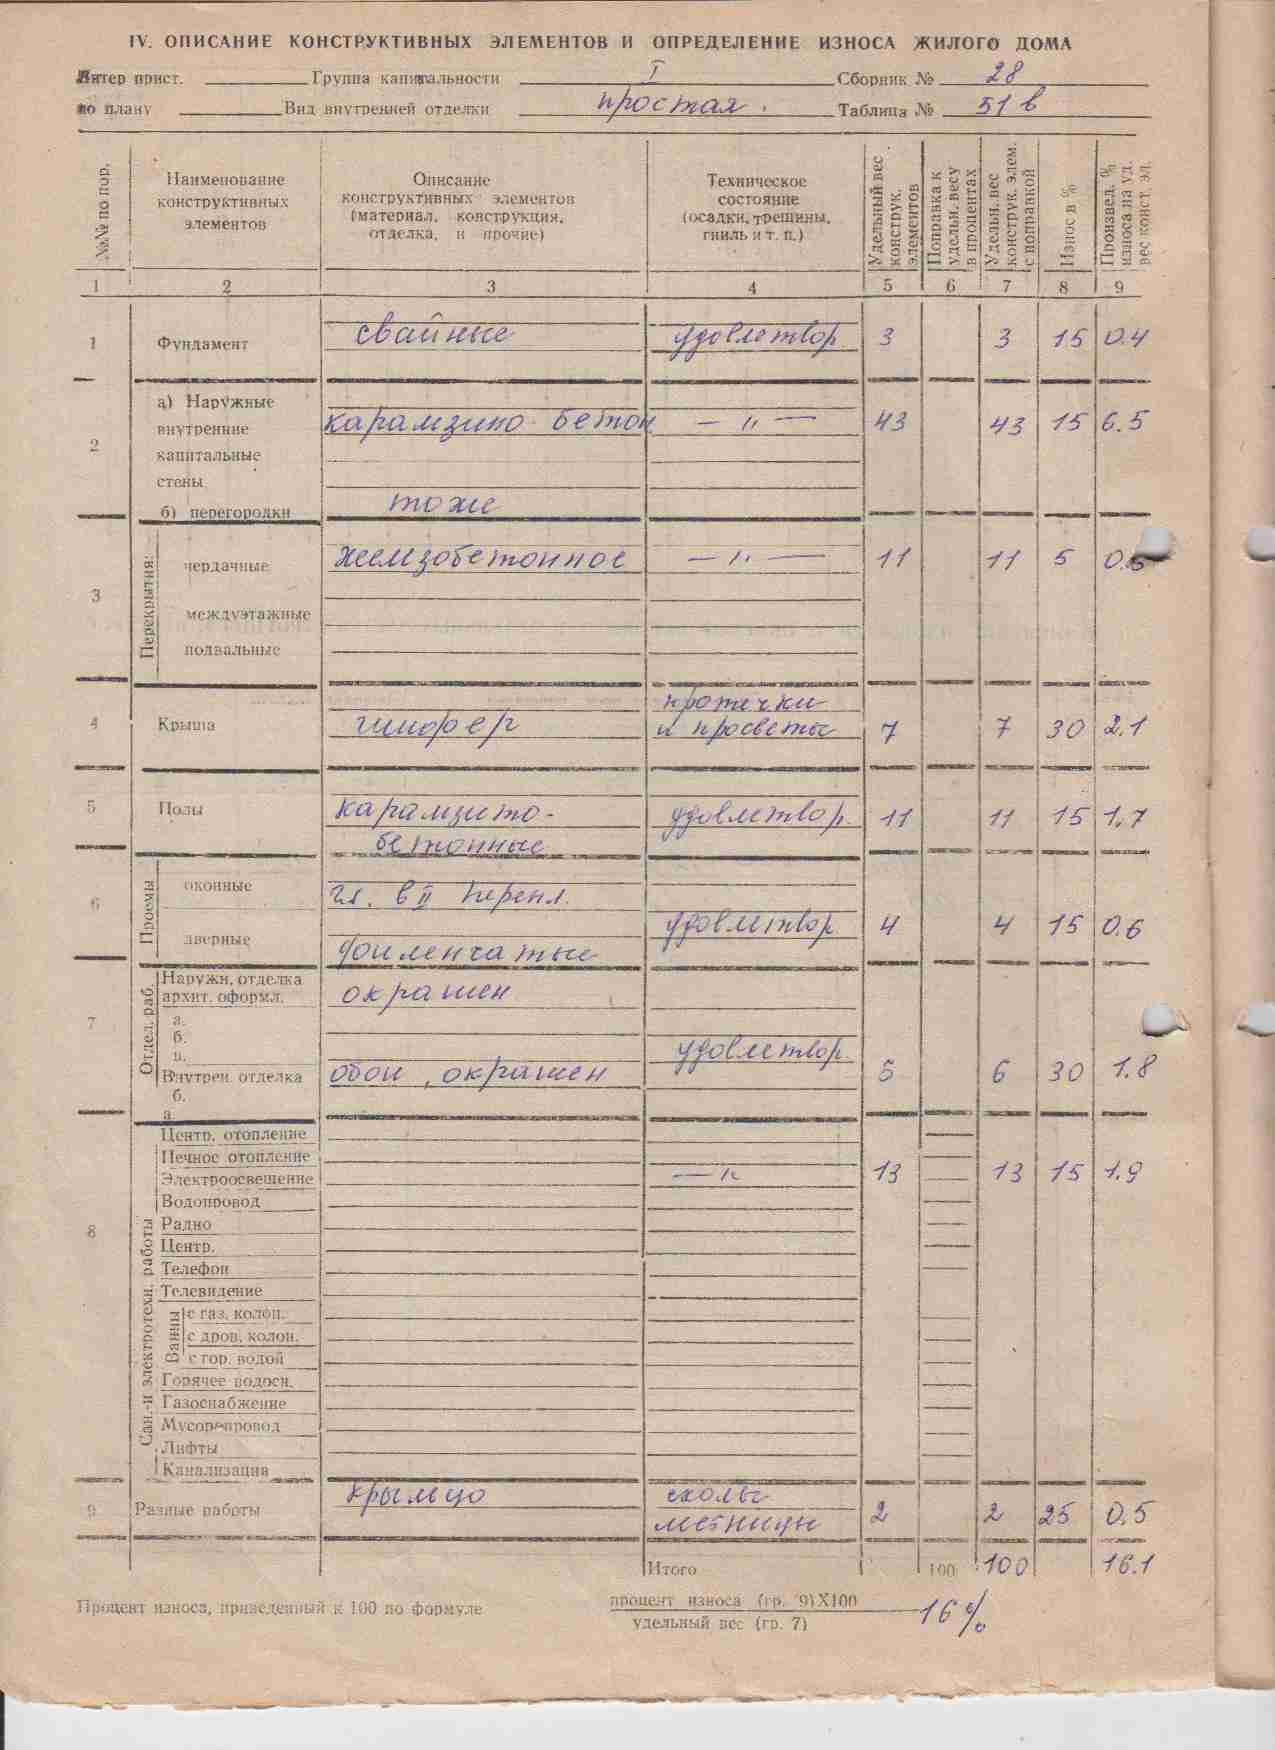 IV. ОПИСАНИЕ КОНСТРУКТИВНЫХ ЭЛЕМЕНТОВ И ОПРЕДЕЛЕНИЕ ИЗНОСА ЖИЛОГО ДОМА
Литер прист. Группа капитальности I Сборник № 28
по плану Вид внутренней отделки простая. Таблица № 51 в
№№ по пор. Наименование конструктивных элементов Описание конструктивных элементов (материал, конструкция, отделка, и прочие) Техническое состояние (осадки, трещины, гниль и т. п.) Удельный вес конструк. элементов Поправка к удельн. весу в процентах Удельн. вес конструк. элем. с поправкой Износ в % Произвел. % износа на уд. вес конст. эл.
1 2 3 4 5 6 7 8 9
1 Фундамент свайные удовлетвор. 3 3 15 0.4
2 а) Наружные внутренние капитальные стены. карамзито-бетон — " — 43 43 15 6.5
б) перегородки тоже
3 Перекрытия: чердачные железобетонное — " — 11 11 5 0.5
междуэтажные
подвальные
4 Крыша шифер протечки и просветы 7 7 30 2.1
5 Полы карамзито-бетонные удовлетвор. 11 11 15 1.7
6 Проемы оконные гл. в II перепл.
дверные филенчатые удовлетвор 4 4 15 0.6
7 Отдел. раб. Наружн. отделка архит. оформл. окрашен
а.
б.
в. удовлетвор.
Внутрен. отделка обои, окрашен 6 30 1.8
б.
а
8 Сан.-и электротехн. работы Центр. отопление
Печное отопление
Электроосвещение — " 13 13 15 1.9
Водопровод
Радио
Центр.
Телефон
Телевидение
Ванны с газ. колон.
с дров. колон.
с гор. водой
Горячее водосн.
Газоснабжение
Мусоропровод
Лифты
Канализация
9 Разные работы крыльцо сколы лестницы 2 2 25 0.5
Итого 100 100 16.1
Процент износа, приведенный к 100 по формуле процент износа (гр. 9)X100 16%
удельный вес (гр. 7)